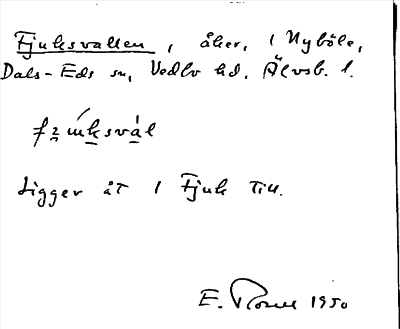 Fjuksvallen, åker, 1 Nyböle,
Dals-Eds sn, Vedbo hd, Älvsb. l.
Ligger åt 1 Fjuk till.
E. 1950